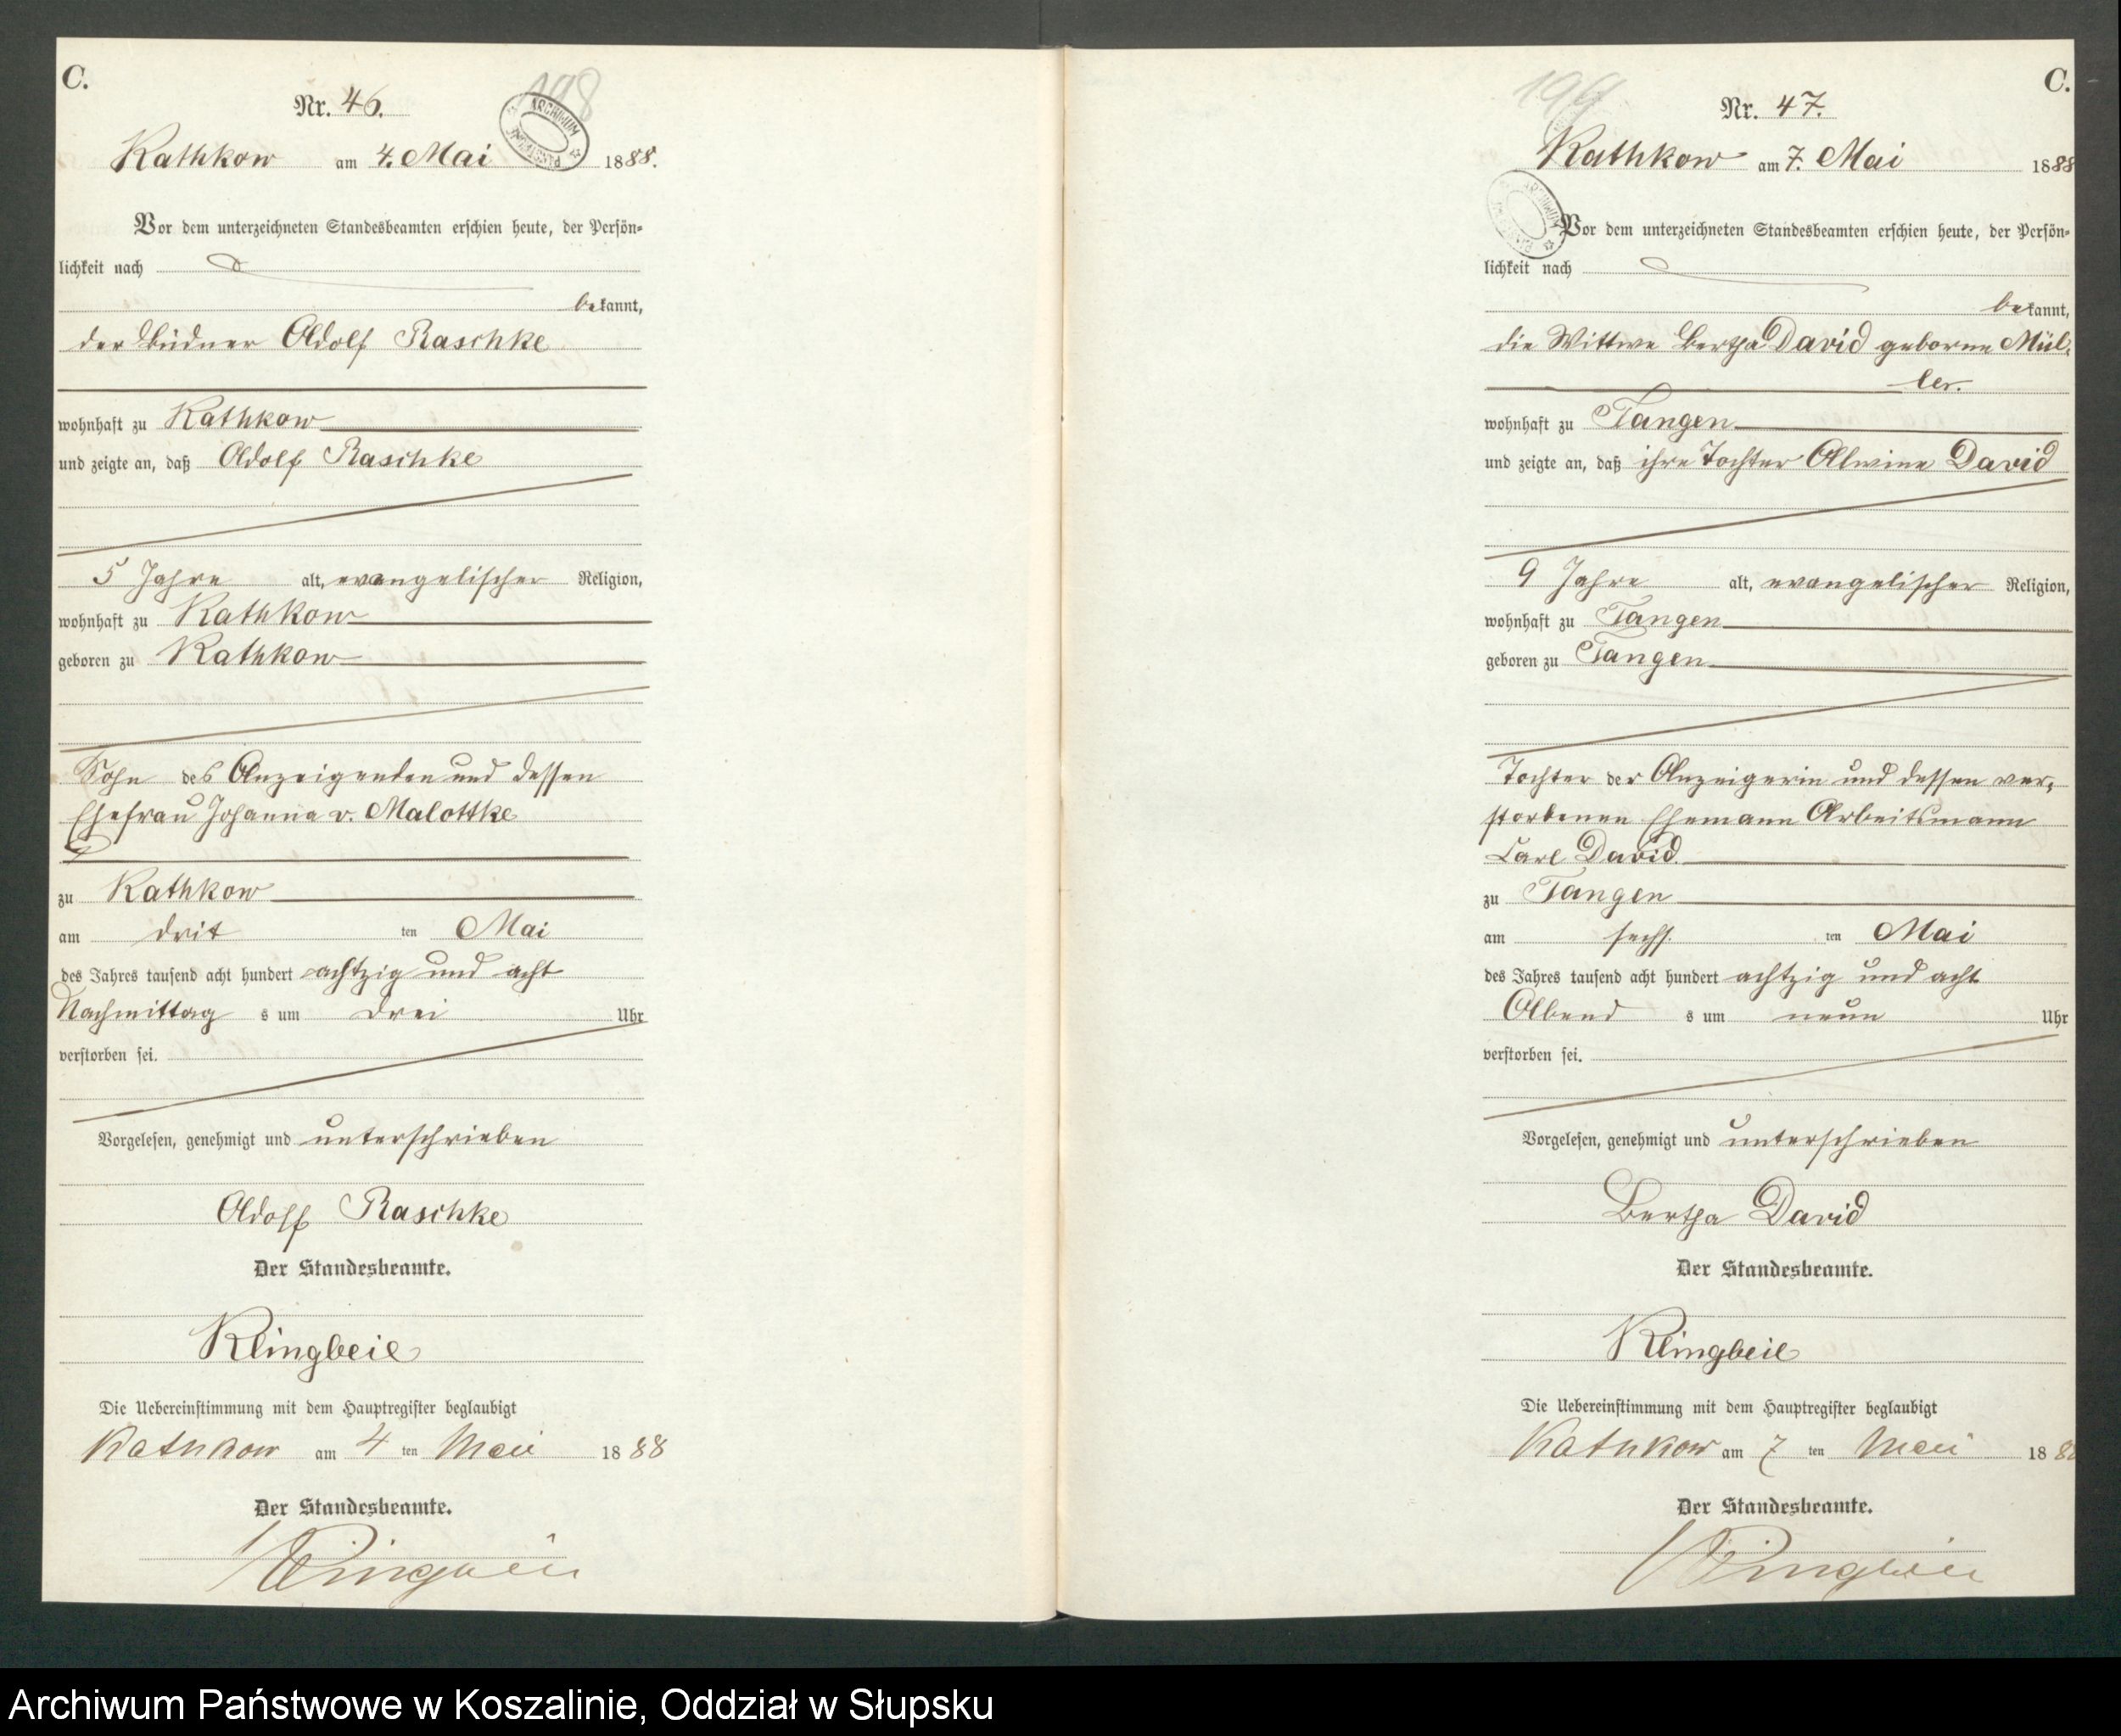 C.
198
Nr. 46.
ARCHIWUM
Rathkow am 4. Mai 1888.
Vor dem unterzeichneten Standesbeamten erschien heute, der Persön-
lichkeit nach
bekannt,
der Büdner Adolf Raschke
wohnhaft zu Rathkow
und zeigte an, daß Adolf Raschke
5 Jahre alt, evangelischer Religion,
wohnhaft zu Rathkow
geboren zu Rathkow
Sohn des Anzeigenden und dessen
Ehefrau Johanna v. Malottke
zu Rathkow
am drit ten Mai
des Jahres tausend acht hundert achtzig und acht
Nachmittag s um drei Uhr
verstorben sei.
Vorgelesen, genehmigt und unterschrieben
Adolf Raschke
Der Standesbeamte.
Klingbeil
Die Uebereinstimmung mit dem Hauptregister beglaubigt
Rathkow am 4 ten Mai 1888
Der Standesbeamte.
Klingbeil
C.
199
Nr. 47.
Rathkow am 7. Mai 1888
Vor dem unterzeichneten Standesbeamten erschien heute, der Persön-
lichkeit nach
bekannt,
die Wittwe Bertha David geborne Mül-
ler.
wohnhaft zu Tangen
und zeigte an, daß ihre Tochter Alwine David
9 Jahre alt, evangelischer Religion,
wohnhaft zu Tangen
geboren zu Tangen
Tochter der Anzeigerin und dessen ver-
storbenen Ehemann Arbeitsmann
Carl David
zu Tangen
am sechs ten Mai
des Jahres tausend acht hundert achtzig und acht
Abend s um neun Uhr
verstorben sei.
Vorgelesen, genehmigt und unterschrieben
Bertha David
Der Standesbeamte.
Klingbeil
Die Uebereinstimmung mit dem Hauptregister beglaubigt
Rathkow am 7 ten Mai 188
Der Standesbeamte.
Klingbeil
Archiwum Państwowe w Koszalinie, Oddział w Słupsku